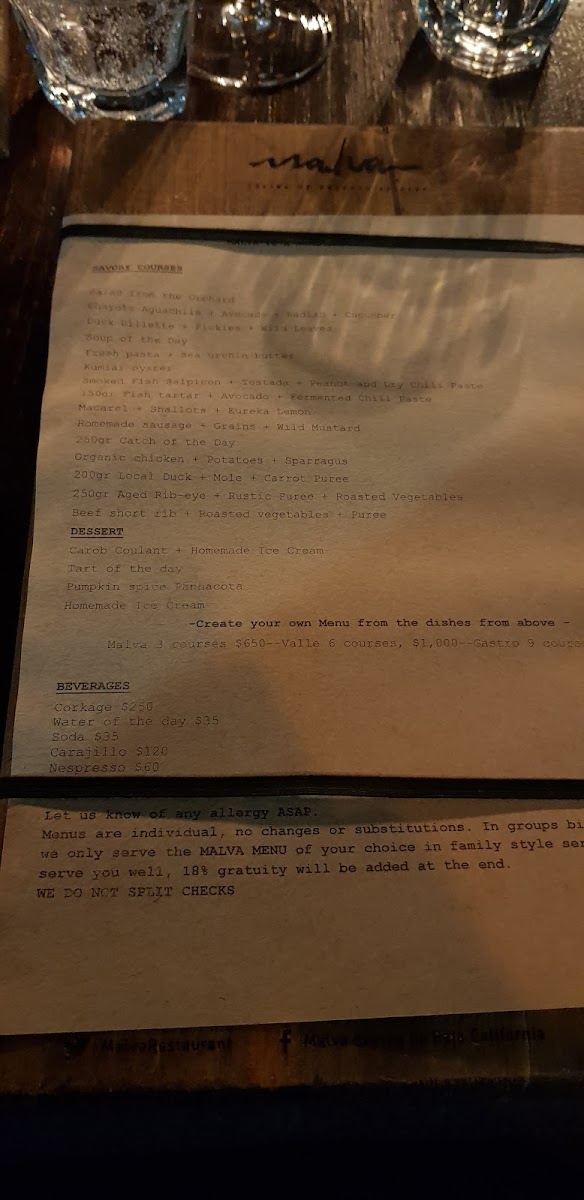 malva
SAVORY COURSES
Salad from the Orchard
Chayote Aguachile + Avocado + Radish + Cucumber
Duck Rillette + Pickles + Wild Leaves
Soup of the Day
Fresh pasta + Sea urchin butter
Kumiai oyster
Smoked Fish Salpicon + Tostada + Peanut and Dry Chili Paste
150gr Fish tartar + Avocado + Fermented Chili Paste
Macarel + Shallots + Eureka Lemon
Homemade sausage + Grains + Wild Mustard
250gr Catch of the Day
Organic chicken + Potatoes + Sparragus
200gr Local Duck + Mole + Carrot Puree
250gr Aged Rib-eye + Rustic Puree + Roasted Vegetables
Beef short rib + Roasted vegetables + Puree
DESSERT
Carob Coulant + Homemade Ice Cream
Tart of the day
Pumpkin spice Pannacota
Homemade Ice Cream
-Create your own Menu from the dishes from above -
Malva 3 courses $650--Valle 6 courses, $1,000--Gastro 9 course
BEVERAGES
Corkage $250
Water of the day $35
Soda $35
Carajillo $120
Nespresso $60
Let us know of any allergy ASAP.
Menus are individual, no changes or substitutions. In groups bi
we only serve the MALVA MENU of your choice in family style ser
serve you well, 18% gratuity will be added at the end.
WE DO NOT SPLIT CHECKS
MalvaRestaurant
f Malva Cocina de Baja California